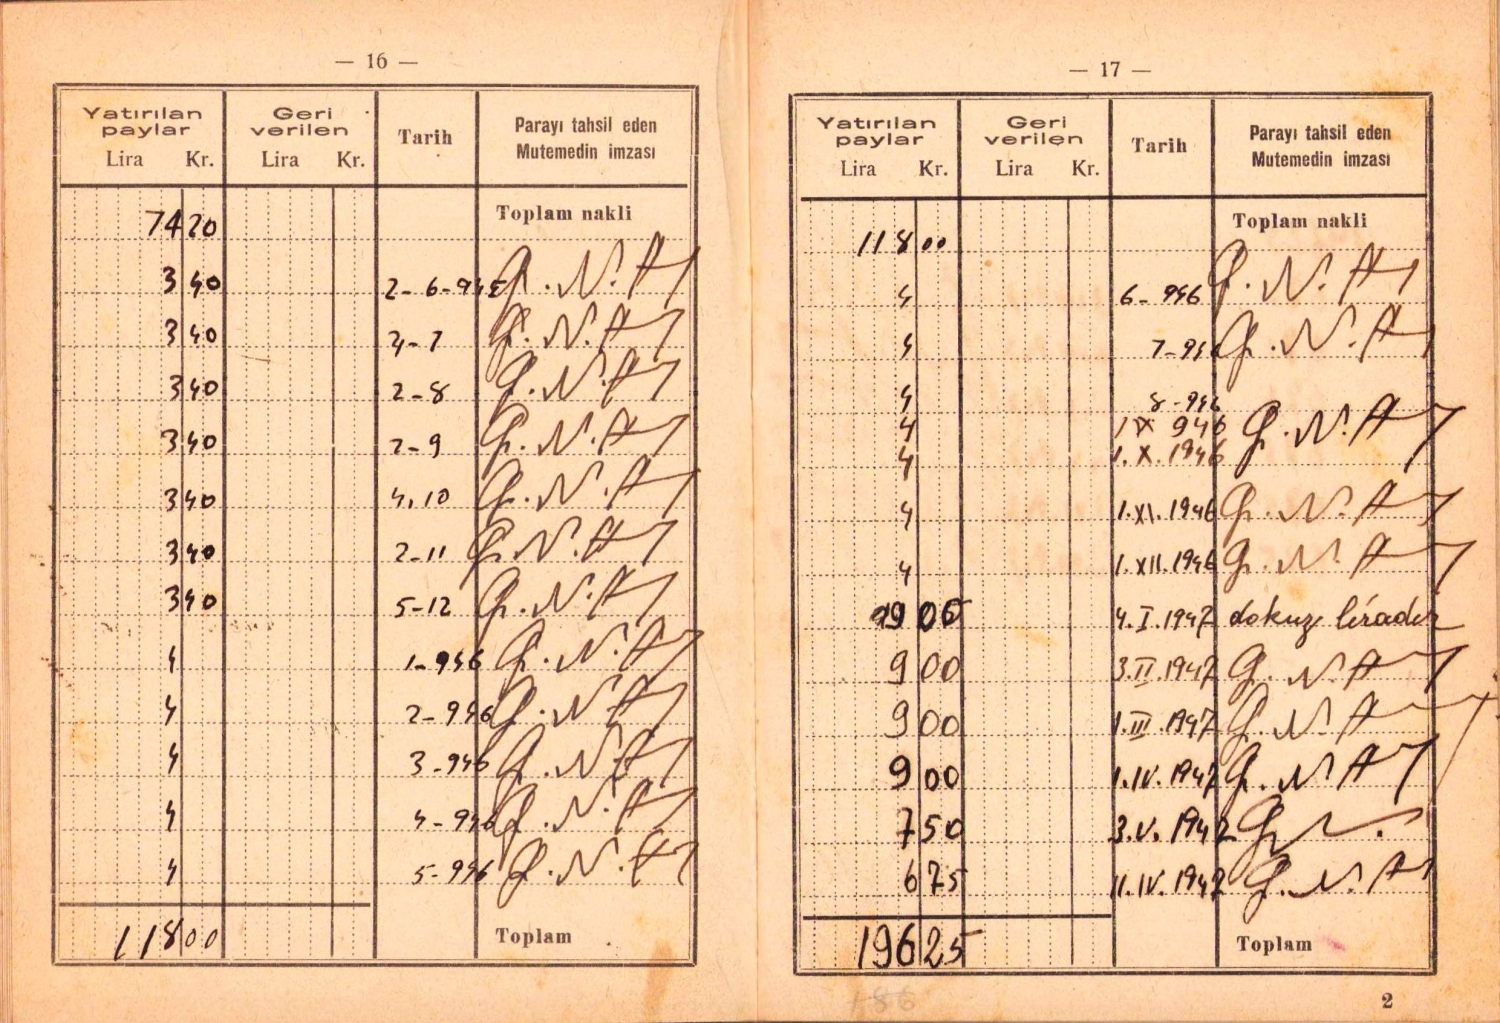 — 16 —
Yatırılan paylar Geri verilen Tarih Parayı tahsil eden Mutemedin imzası
Lira Kr. Lira Kr.
74 20 Toplam nakli
3 40 2-6-945
3 40 2-7
3 40 2-8
3 40 2-9
3 40 4.10
3 40 2-11
3 40 5-12
4 1-946
4 2-946
4 3-946
4 4-946
4 5-946
118 00 Toplam
— 17 —
Yatırılan paylar Geri verilen Tarih Parayı tahsil eden Mutemedin imzası
Lira Kr. Lira Kr.
118 00 Toplam nakli
4 6-946
4 7-946
4 8-946
4 1 IX 946
4 1.X.1946
4 1.XI.1946
4 1.XII.1946
9 00 4.I.1947 dokuz liradır
9 00 3.II.1947
9 00 1.III.1947
9 00 1.IV.1947
7 50 3.V.1947
6 75 11.IV.1947
196 25 Toplam
186
2